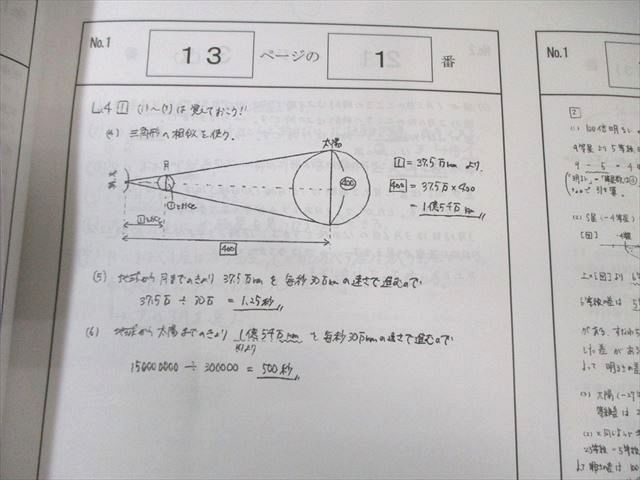 No.1
13 ページの 1 番
L.4 1 (1)～(3)は覚えておこう!
(4) 三角形の相似を使う.
月
太陽
400
1 = 37.5万km より
400 = 37.5万×400
= 1億5千万km
400
(5) 地球から月までのきょり 37.5万kmを毎秒30万kmの速さで進むので
37.5万 ÷ 30万 = 1.25秒
(6) 地球から太陽までのきょり 1億5千万kmを毎秒30万kmの速さで進むので
(4)より
150000000 ÷ 300000 = 500秒
No.1
2
(1) 100倍明るい
9 - 5 = 4
(2) 5星(-4等級)
[図] -4等級
上の[図]より
がある. すなわち
した差がある
よって 明るさの差
(3) 太陽(-27
等級差は